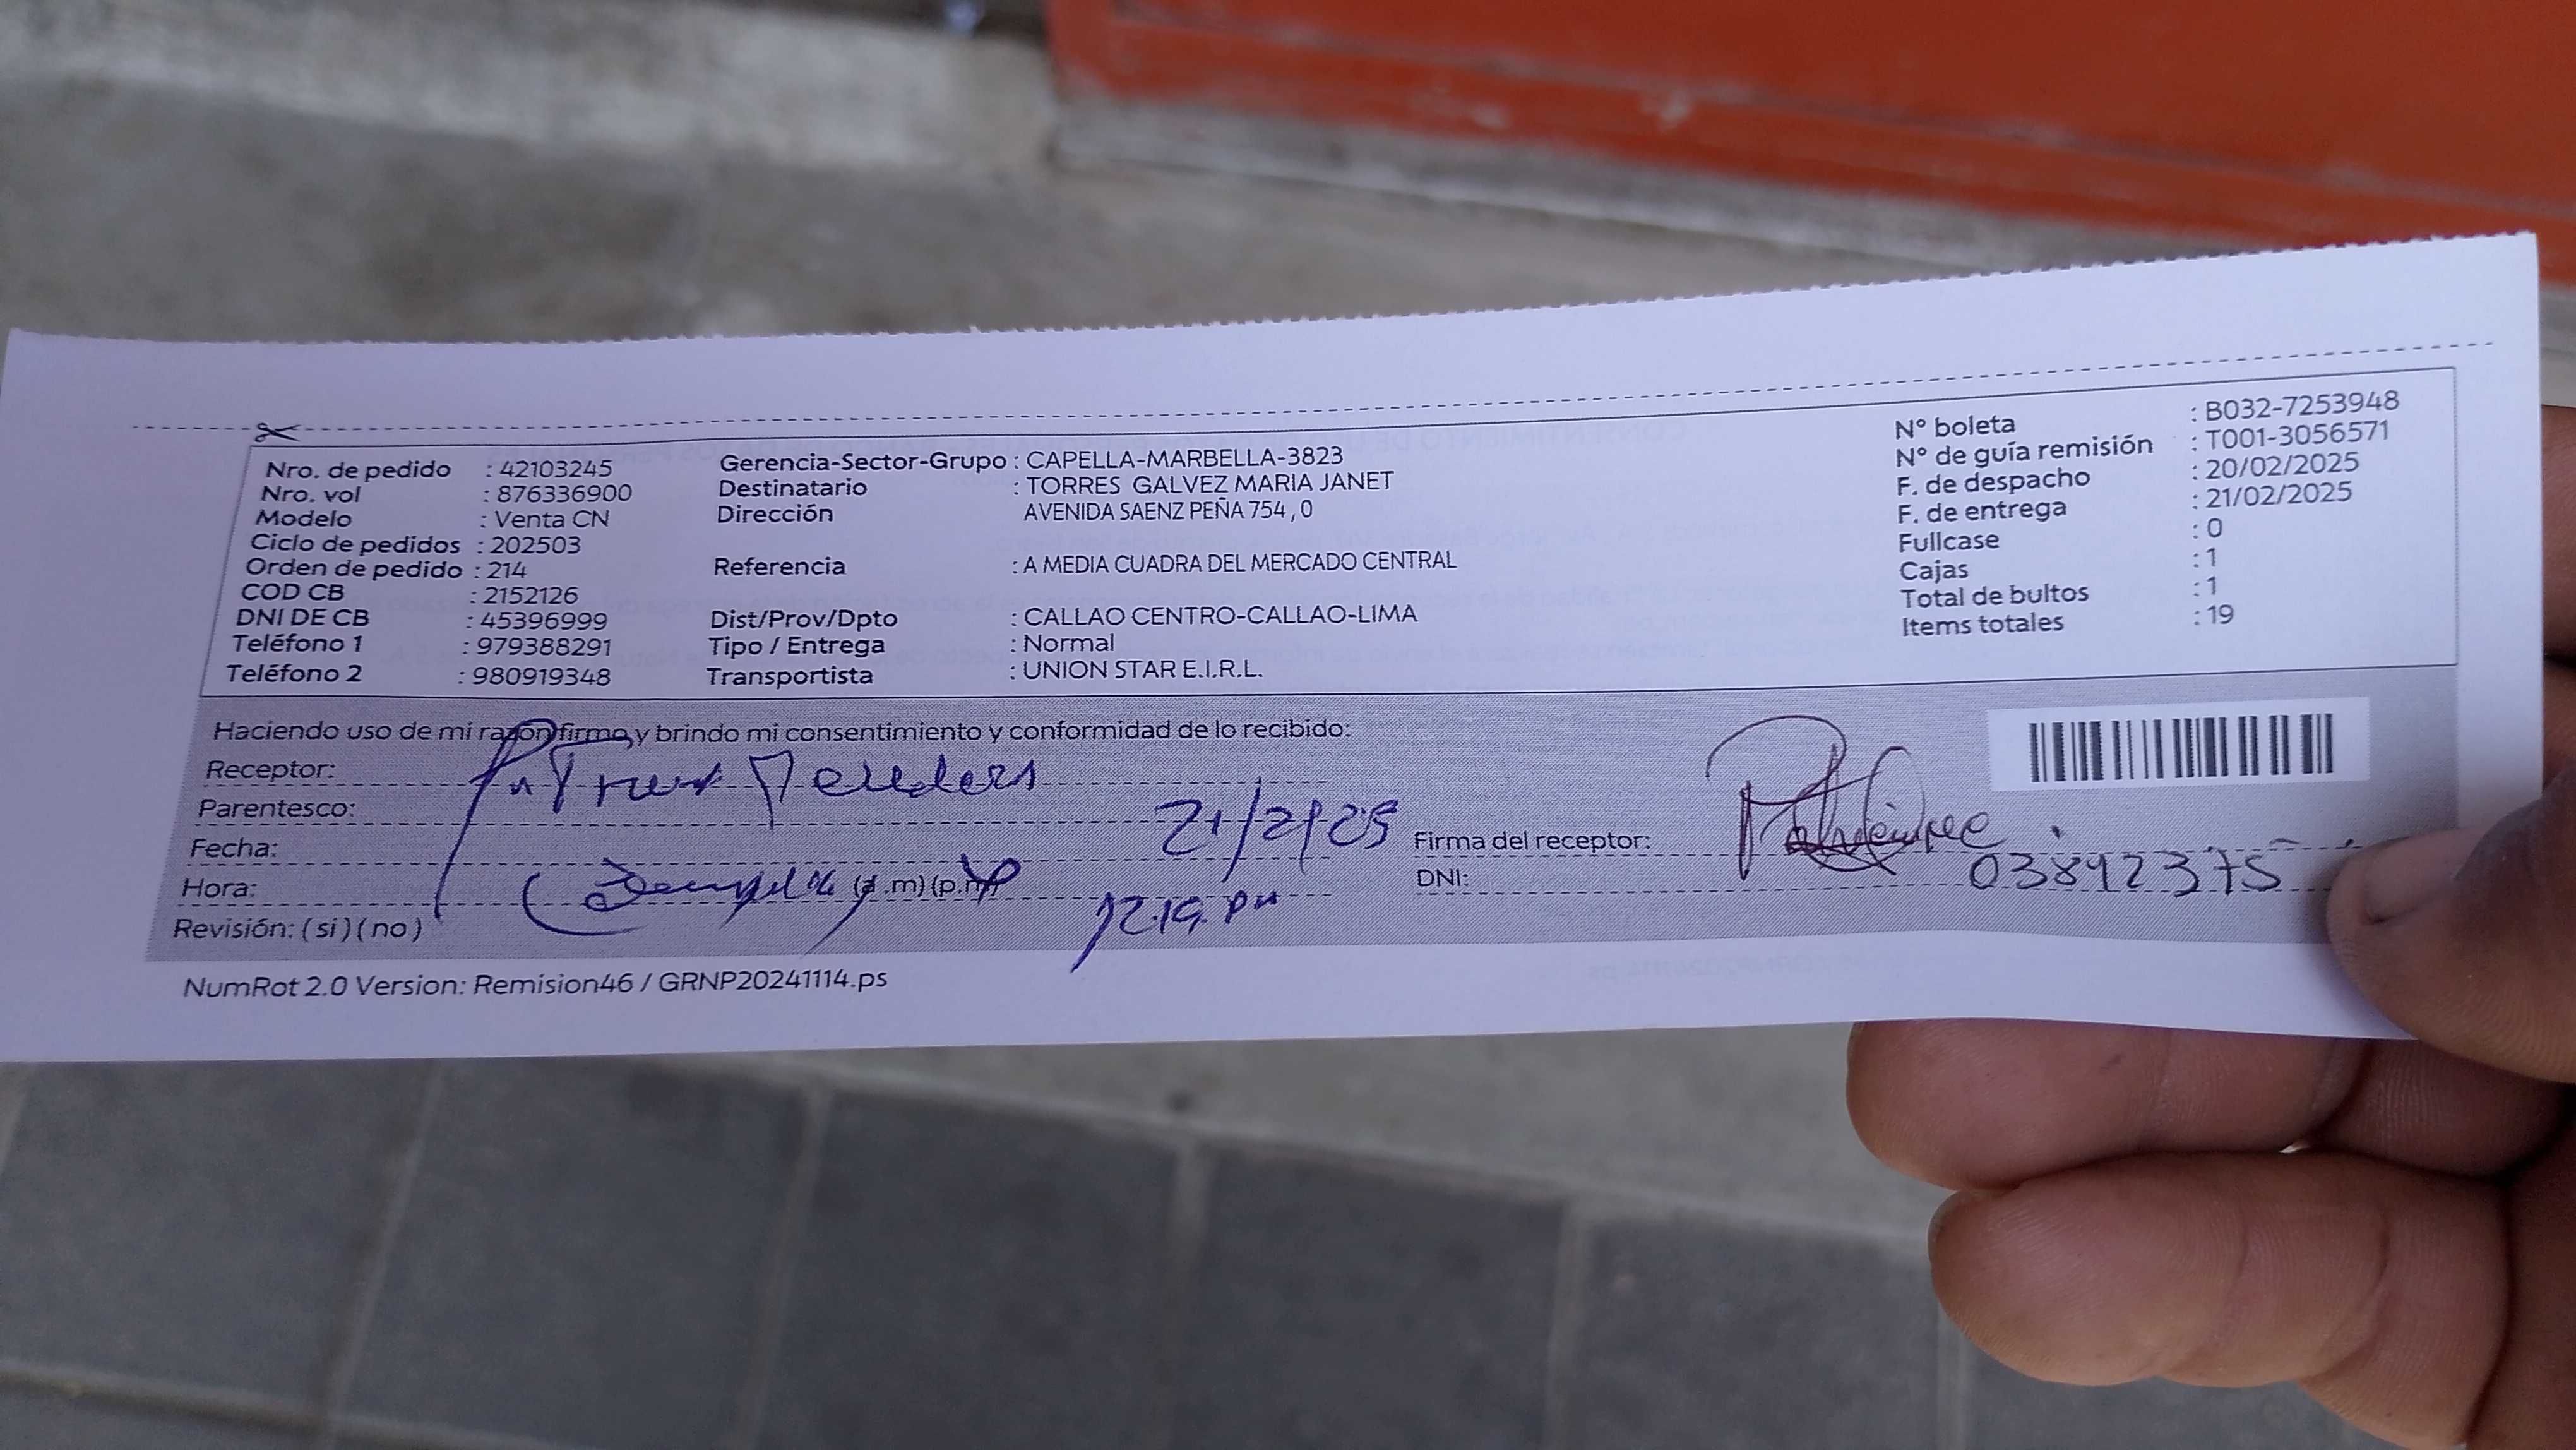 Nro. de pedido : 42103245
Nro. vol : 876336900
Modelo : Venta CN
Ciclo de pedidos : 202503
Orden de pedido : 214
COD CB : 2152126
DNI DE CB : 45396999
Teléfono 1 : 979388291
Teléfono 2 : 980919348
Gerencia-Sector-Grupo : CAPELLA-MARBELLA-3823
Destinatario : TORRES GALVEZ MARIA JANET
Dirección AVENIDA SAENZ PEÑA 754 , 0
Referencia : A MEDIA CUADRA DEL MERCADO CENTRAL
Dist/Prov/Dpto : CALLAO CENTRO-CALLAO-LIMA
Tipo / Entrega : Normal
Transportista : UNION STAR E.I.R.L.
N° boleta : B032-7253948
N° de guía remisión : T001-3056571
F. de despacho : 20/02/2025
F. de entrega : 21/02/2025
Fullcase : 0
Cajas : 1
Total de bultos : 1
Items totales : 19
Haciendo uso de mi razón firmo y brindo mi consentimiento y conformidad de lo recibido:
Receptor:
Parentesco:
Fecha: 21/2/25
Hora: (a.m) (p.m)
Revisión: ( si ) ( no )
Firma del receptor:
DNI: 03892375
NumRot 2.0 Version: Remision46 / GRNP20241114.ps